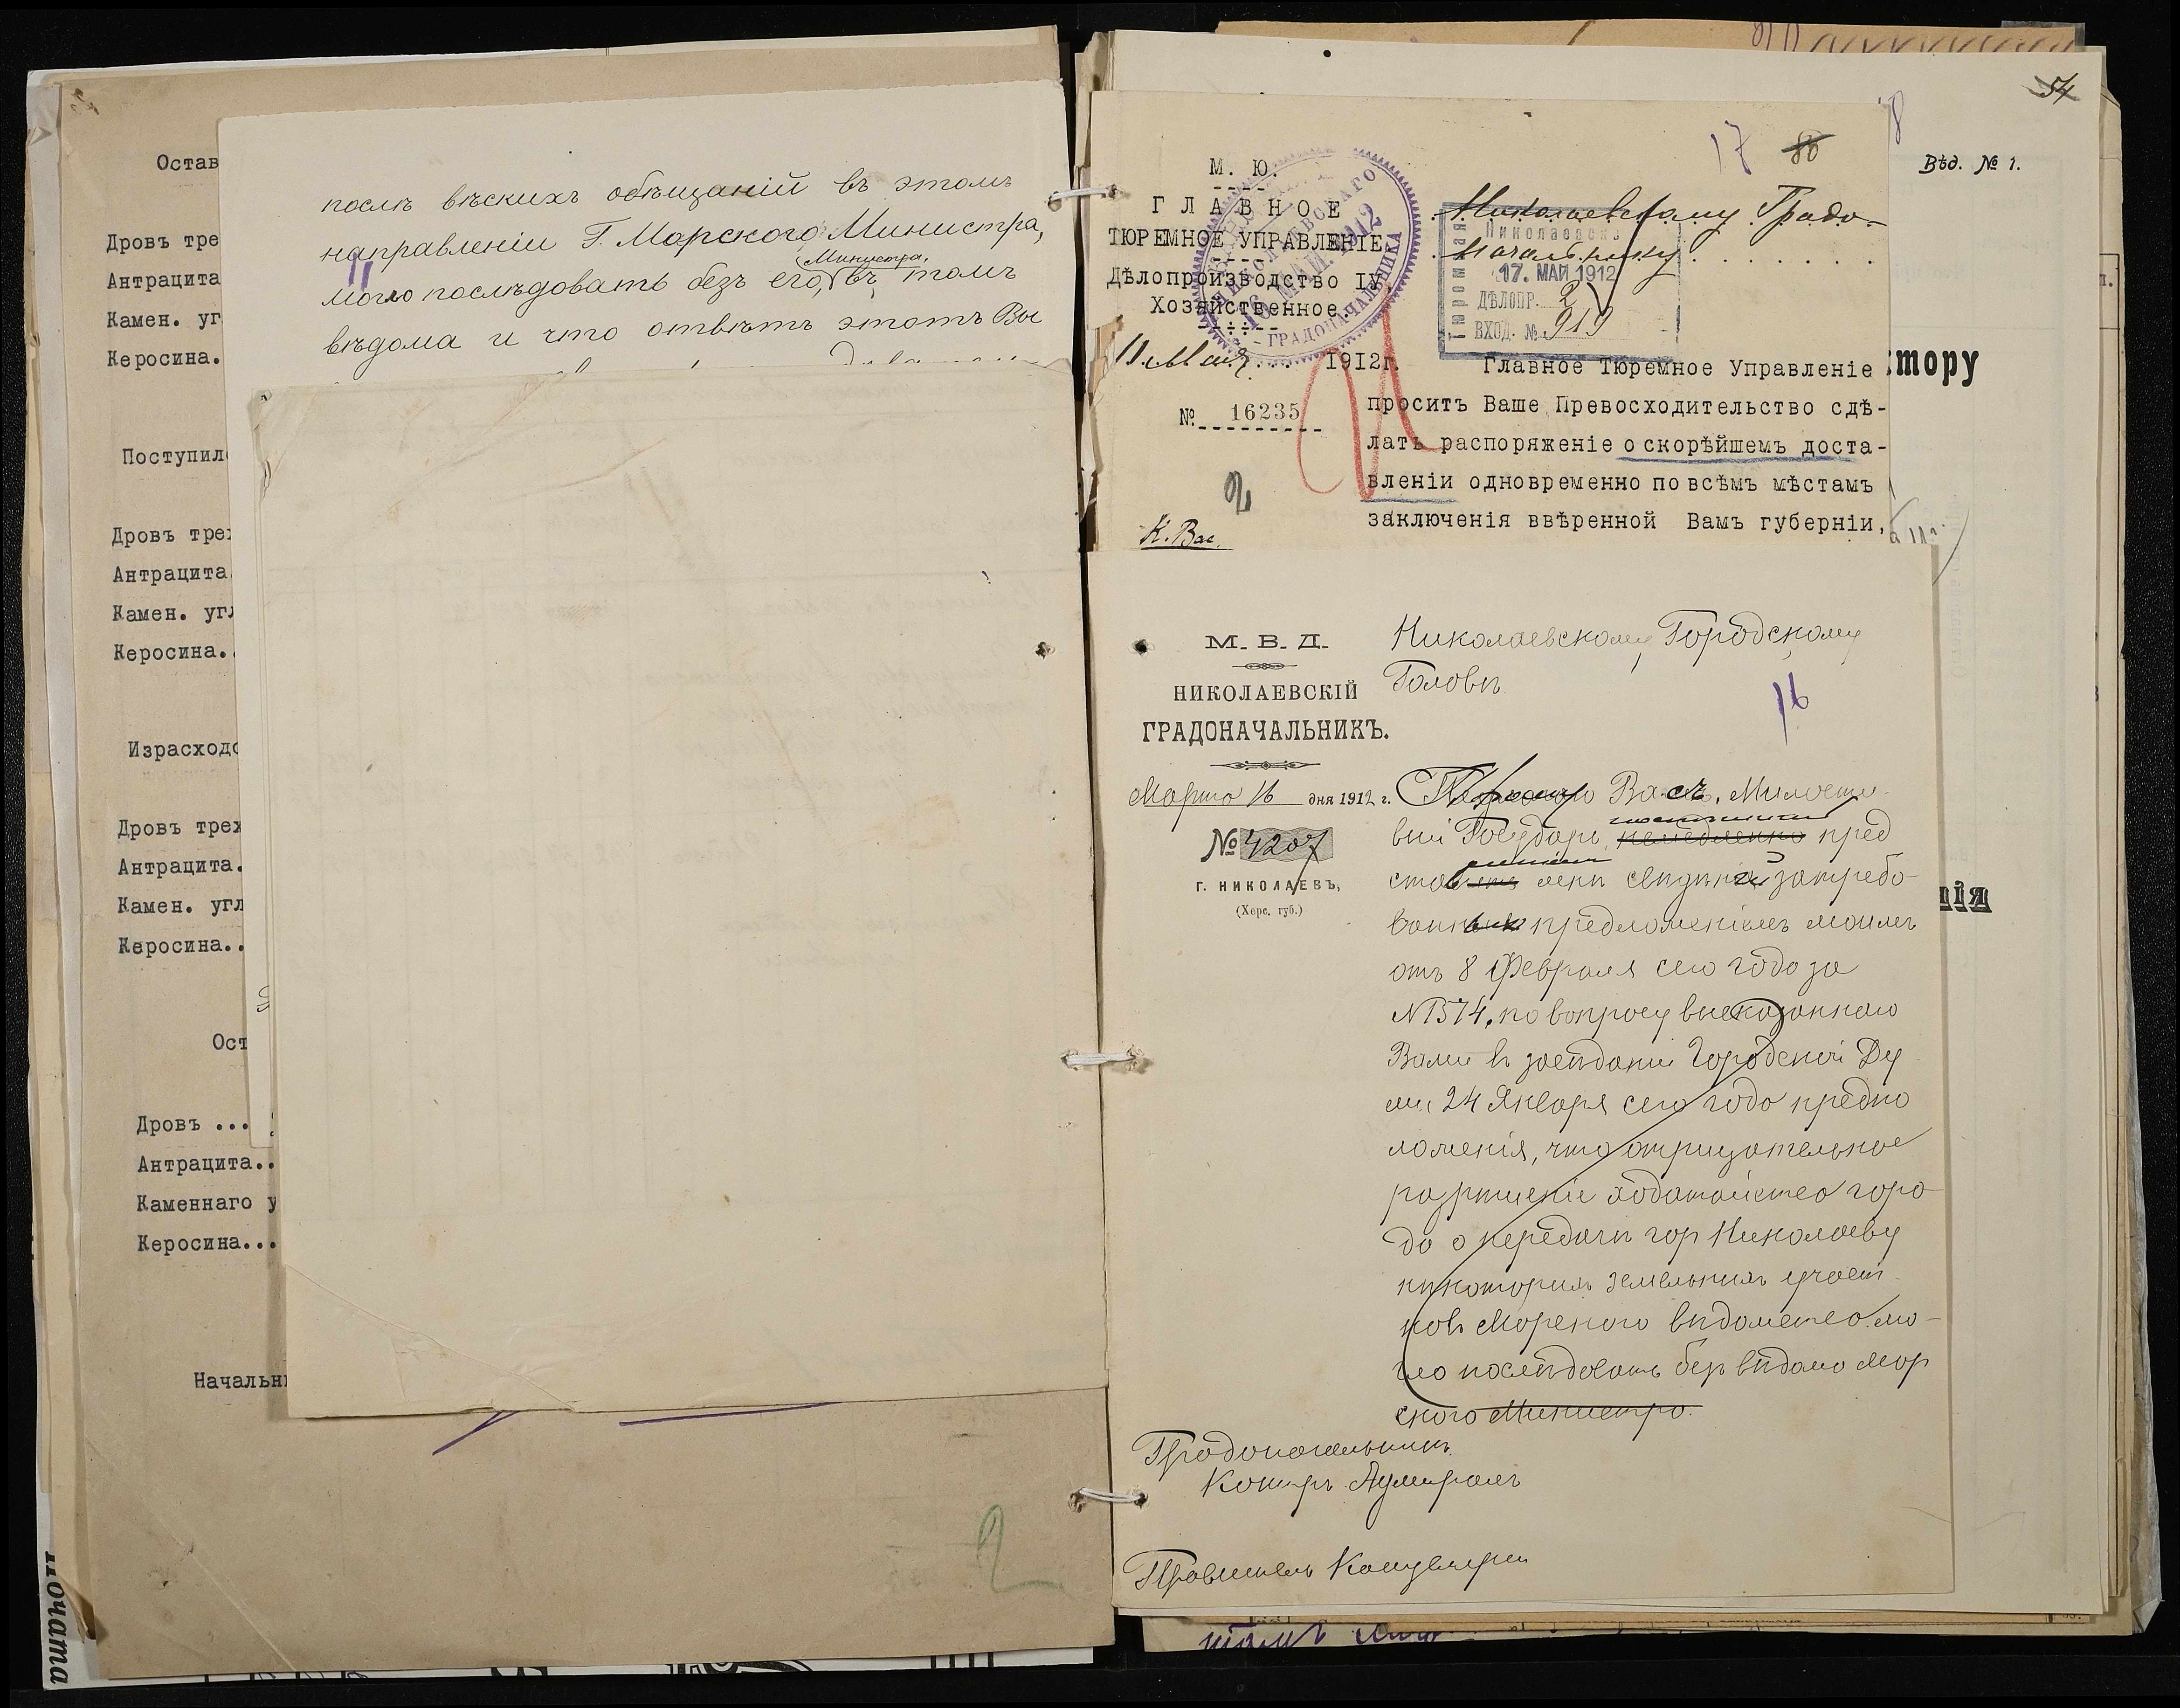 Остав
Дровъ тре
Антрацита
Камен. уг
Керосина.
Поступил
Дровъ трех
Антрацита.
Камен. угл
Керосина..
Израсходо
Дровъ трех
Антрацита.
Камен. угл
Керосина..
Ост
Дровъ ...
Антрацита..
Каменнаго у
Керосина...
Начальн
2
почата
послѣ вѣскихъ обѣщаній въ этомъ
направленіи Г. Морского Министра,
Министра,
могло послѣдовать безъ его, въ томъ
вѣдома и что отвѣтъ этотъ Вы
54
8
Вѣд. № 1.
тору
нія
17 80
М. Ю.
ГЛАВНОЕ
ТЮРЕМНОЕ УПРАВЛЕНІЕ.
Дѣлопроизводство IV,
Хозяйственное.
11 Мая 1912г.
№ 16235
2
К. Вас.
16 МАЙ 1912
ГРАДОНАЧАЛЬНИКА
Николаевскому Градо-
начальнику
17. МАЙ 1912
ДѢЛОПР. 2
ВХОД. № 919
Главное Тюремное Управленіе
проситъ Ваше Превосходительство сдѣ-
лать распоряженіе о скорѣйшемъ доста-
вленіи одновременно по всѣмъ мѣстамъ
заключенія ввѣренной Вамъ губерніи,
М. В. Д.
НИКОЛАЕВСКІЙ
ГРАДОНАЧАЛЬНИКЪ.
Марта 16 дня 1912 г.
№ 4207
Г. НИКОЛАЕВЪ,
(Херс. губ.)
Николаевскому Городскому
Головѣ
16
Васъ, Милости-
вый Государь, немедленно пред
мнѣ свѣдѣній затребо-
предложеніемъ моимъ
отъ 8 Февраля сего года за
№ 1574, по вопросу высказаннаго
Вами въ засѣданіи Городской Ду
мы 24 Января сего года предпо
ложенія, что отрицательное
разрѣшеніе ходатайства горо-
да о передачѣ гор Николаеву
нѣкоторыхъ земельныхъ участ-
ковъ Морского вѣдомства мо-
гло послѣдовать безъ вѣдома Мор
ского Министра.
Градоначальникъ
Контръ Адмиралъ
Правитель Канцеляріи